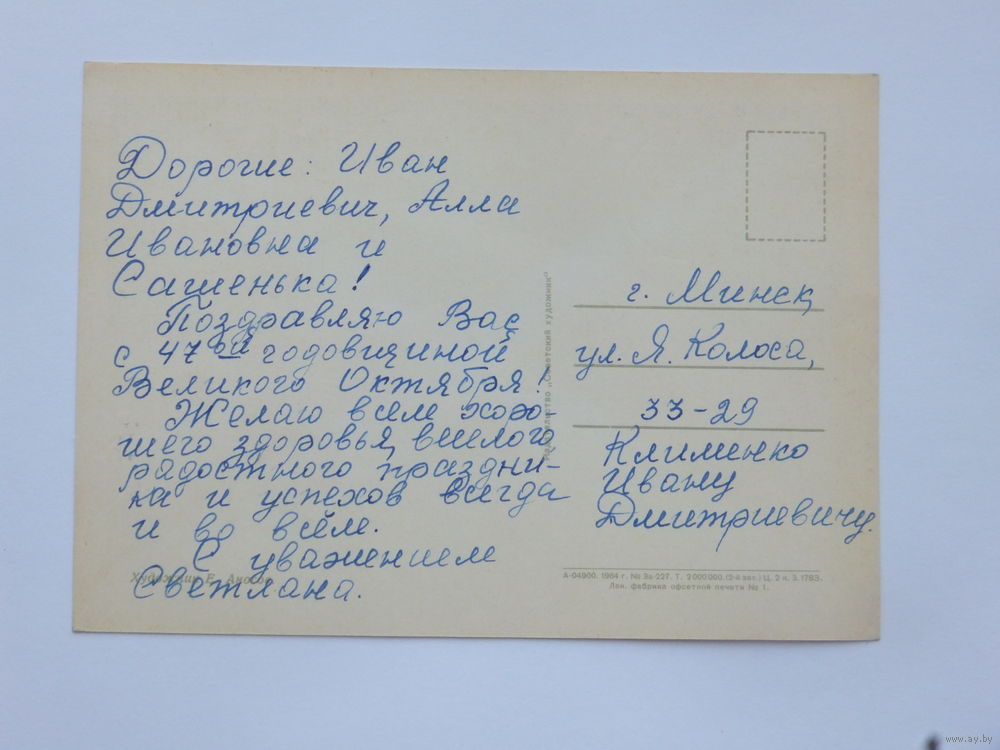 Дорогие: Иван
Дмитриевич, Алла
Ивановна и
Сашенька!
Поздравляю Вас
с 47ой годовщиной
Великого Октября!
Желаю всем хоро-
шего здоровья, веселого
радостного праздни-
ка и успехов всегда
и во всём.
С уважением
Светлана.
Художник Е. Аносов
Издательство „Советский художник"
г. Минск,
ул. Я. Колоса,
33-29
Клименко
Ивану
Дмитриевичу.
А-04900. 1964 г. № Зв-227. Т. 2 000 000. (2-й зав.) Ц. 2 к. З. 1783.
Лен. фабрика офсетной печати № 1.
www.ay.by